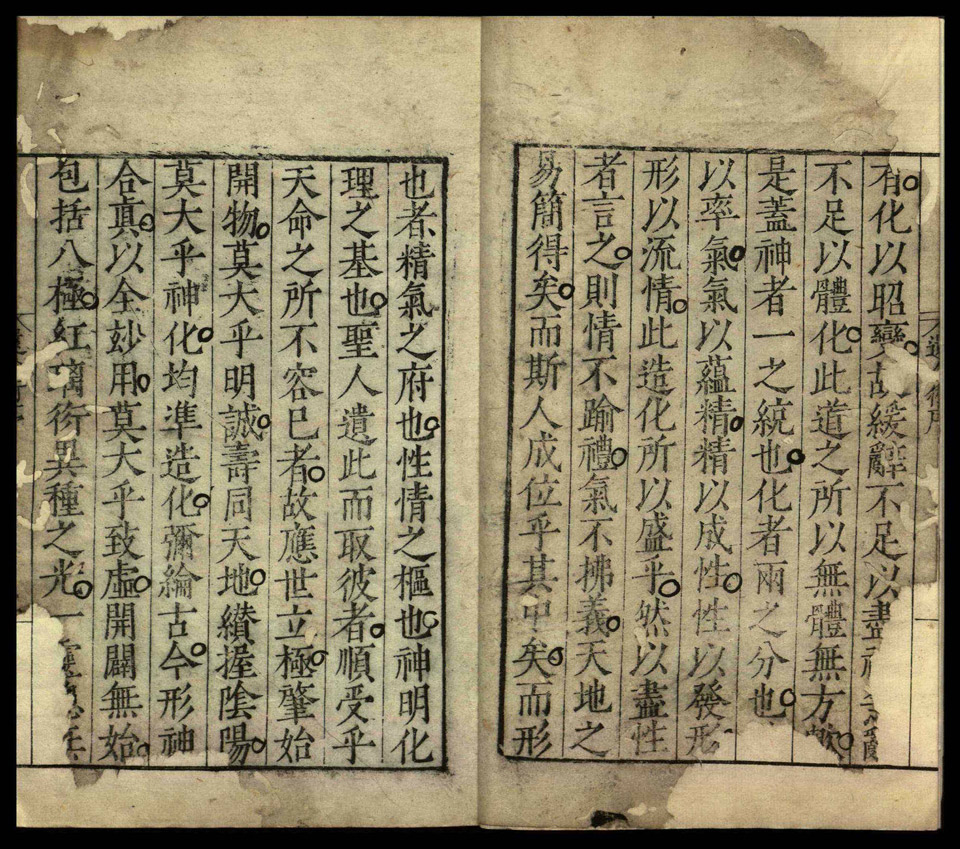 有化以昭變故緩辭不足以盡神
不足以體化此道之所以無體無方歟
是蓋神者一之統也化者兩之分也
以率氣氣以蘊精精以成性性以發形
形以流情此造化所以盛乎然以盡性
者言之則情不踰禮氣不拂義天地之
易簡得矣而斯人成位乎其中矣而形
也者精氣之府也性情之樞也神明化
理之基也聖人遺此而取彼者順受乎
天命之所不容已者故應世立極肇始
開物莫大乎明誠壽同天地纘握陰陽
莫大乎神化均準造化彌綸古今形神
合真以全妙用莫大乎致虛開闢無始
包括八極紅衍異種之光一